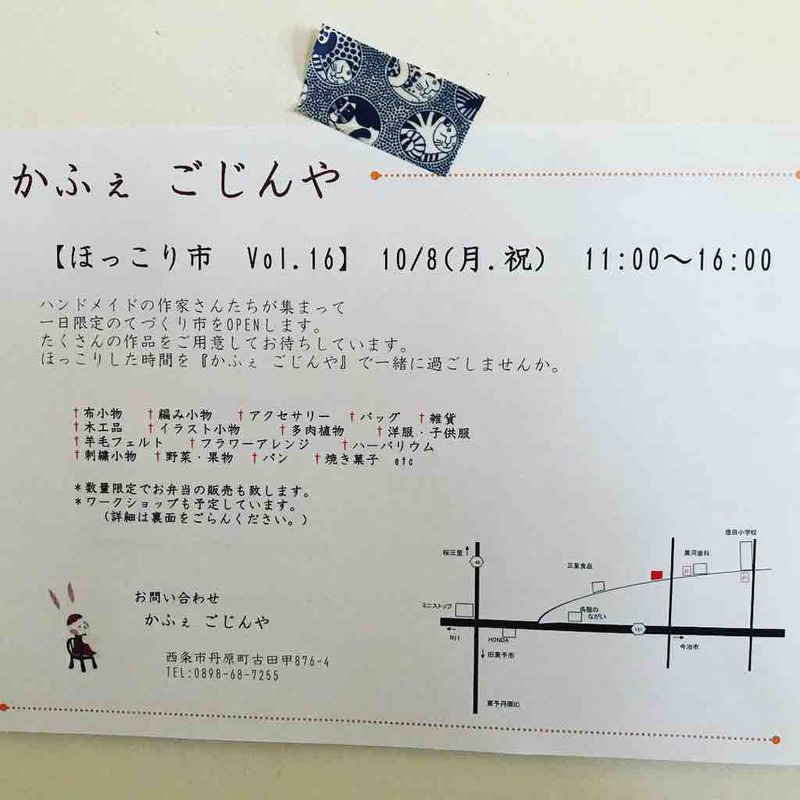 かふぇ ごじんや
【ほっこり市 Vol.16】 10/8(月.祝) 11:00～16:00
ハンドメイドの作家さんたちが集まって
一日限定のてづくり市をOPENします。
たくさんの作品をご用意してお待ちしています。
ほっこりした時間を『かふぇ ごじんや』で一緒に過ごしませんか。
†布小物 †編み小物 †アクセサリー †バッグ †雑貨
†木工品 †イラスト小物 †多肉植物 †洋服・子供服
†羊毛フェルト †フラワーアレンジ †ハーバリウム
†刺繍小物 †野菜・果物 †パン †焼き菓子 etc
*数量限定でお弁当の販売も致します。
*ワークショップも予定しています。
(詳細は裏面をごらんください。)
お問い合わせ
かふぇ ごじんや
西条市丹原町古田甲876-4
TEL:0898-68-7255
徳田小学校
桜三里
48
黒河歯科
三星食品
P
P
ミニストップ
呉服の
ながい
151
R11
HONDA
今治市
旧東予市
東予丹原IC